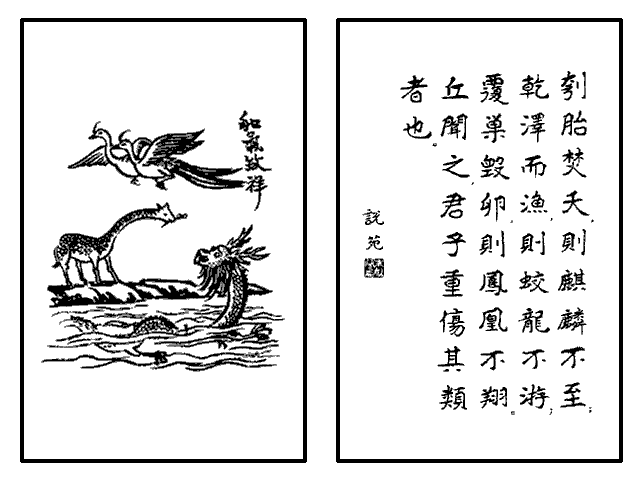 和氣致祥
刳胎焚夭，則麒麟不至；
乾澤而漁，則蛟龍不游；
覆巢毀卵，則鳳凰不翔。
丘聞之，君子重傷其類
者也。
説苑